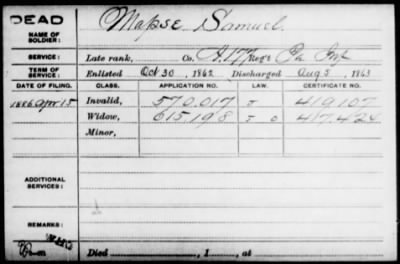 DEAD
NAME OF SOLDIER: Mapse Samuel
SERVICE: Late rank, Co. A. 177 Reg't Pa Inf
TERM OF SERVICE: Enlisted Oct 30, 1862 Discharged Aug 5, 1863
DATE OF FILING. CLASS. APPLICATION NO. LAW. CERTIFICATE NO.
1886 Apr 15 Invalid, 570.017 J 419107
Widow, 615.198 J O 417.424
Minor,
ADDITIONAL SERVICES:
REMARKS:
Died , 1 , at